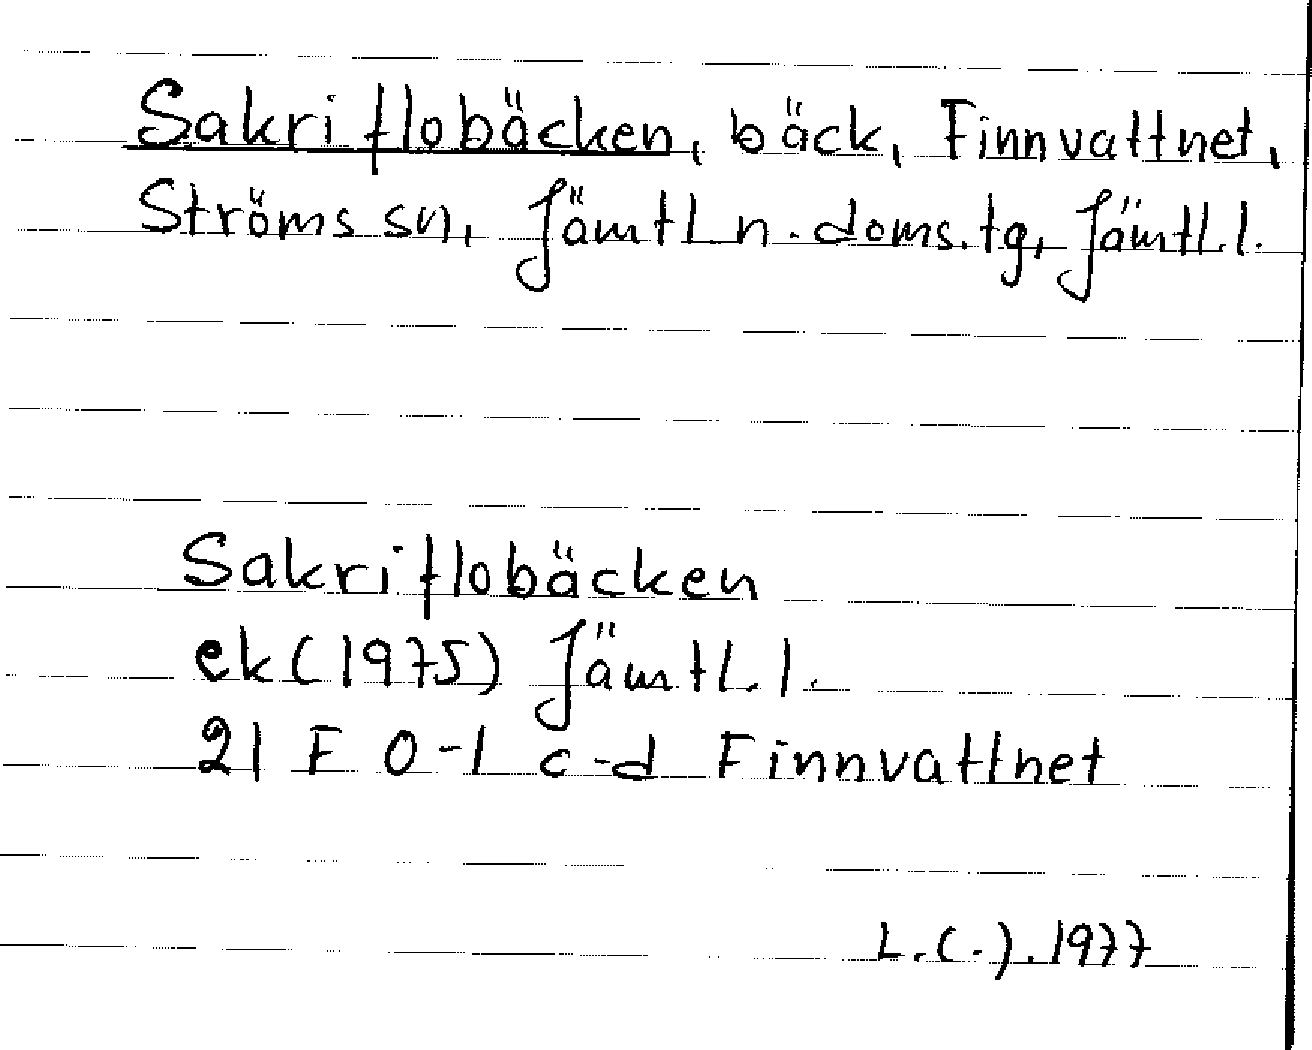 Sakriflobäcken, bäck, Finnvattnet,
Ströms sn, Jämtl. n. doms. tg, Jämtl. l.
Sakriflobäcken
ek (1975) Jämtl. l.
21 F 0-1 c-d Finnvattnet
L.(-). 1977